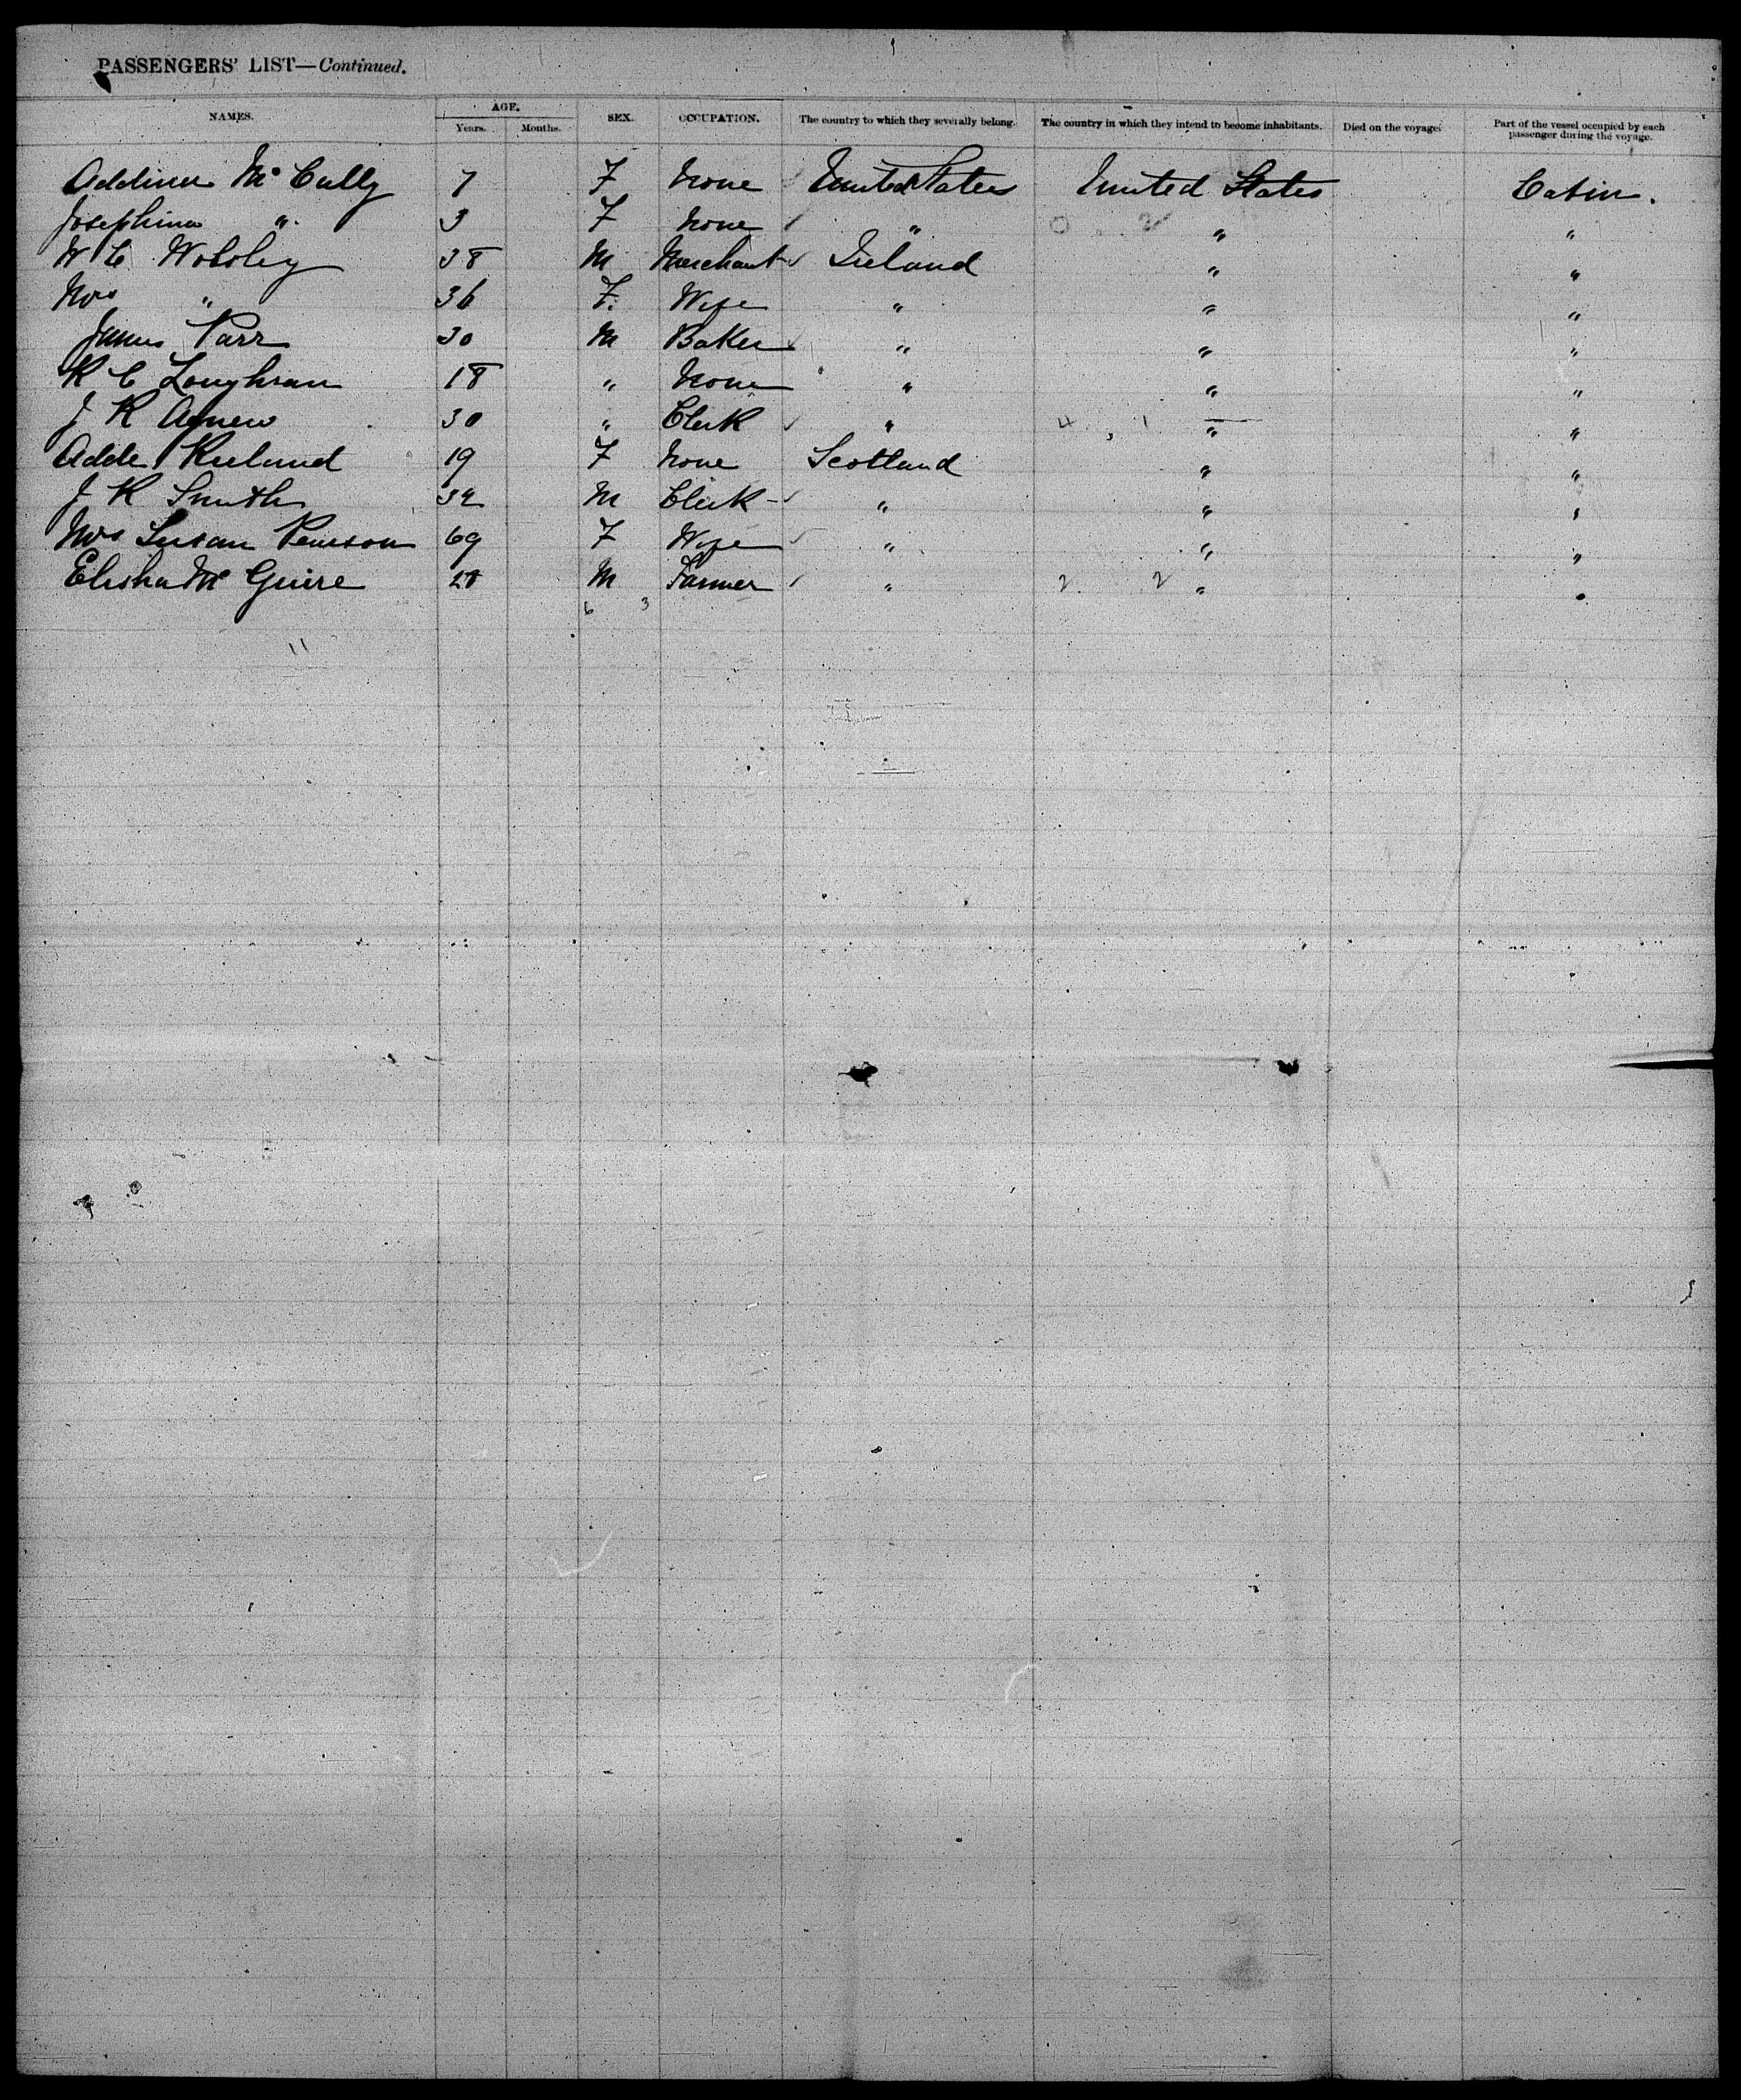 PASSENGERS' LIST—Continued.
NAMES. AGE. Years. Months. SEX. OCCUPATION. The country to which they severally belong. The country in which they intend to become inhabitants. Died on the voyage. Part of the vessel occupied by each passenger during the voyage.
Addina Mc Cully 7 F None United States United States Cabin.
Josephina " 3 F None " " "
W C Wolsley 38 M Merchant Ireland " "
Mrs " 36 F. Wife " " "
James Parr 30 M Baker " " "
R C Loughran 18 " None " " "
J R Agnew 30 " Clerk " " "
Adde 19 F None Scotland " "
J R Smith M Clerk " " "
Mrs Susan Pearson 69 F Wife " " "
Elisha Mc Guire 28 M Farmer " " "
6 3
11